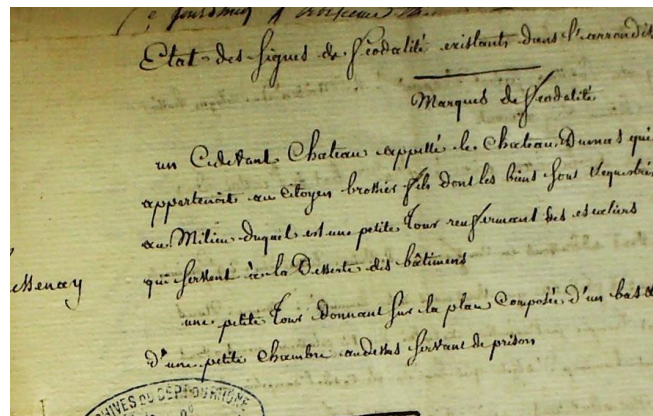 Etat des signes de feodalité existants dans l'arrondis
Marques de feodalité
un Cidevant Chateau appellé le Chateau Dumas qui
appartenoit au Citoyen brothier fils dont les biens sont sequestrés
au Milieu duquel est une petite Tour renfermant des escaliers
qui servent à la Desserte des bâtiments
essenay
une petite Tour donnant sur la place Composée d'un bas &
d'une petite Chambre audessus servant de prison
ARCHIVES DU DEPT DU RHONE